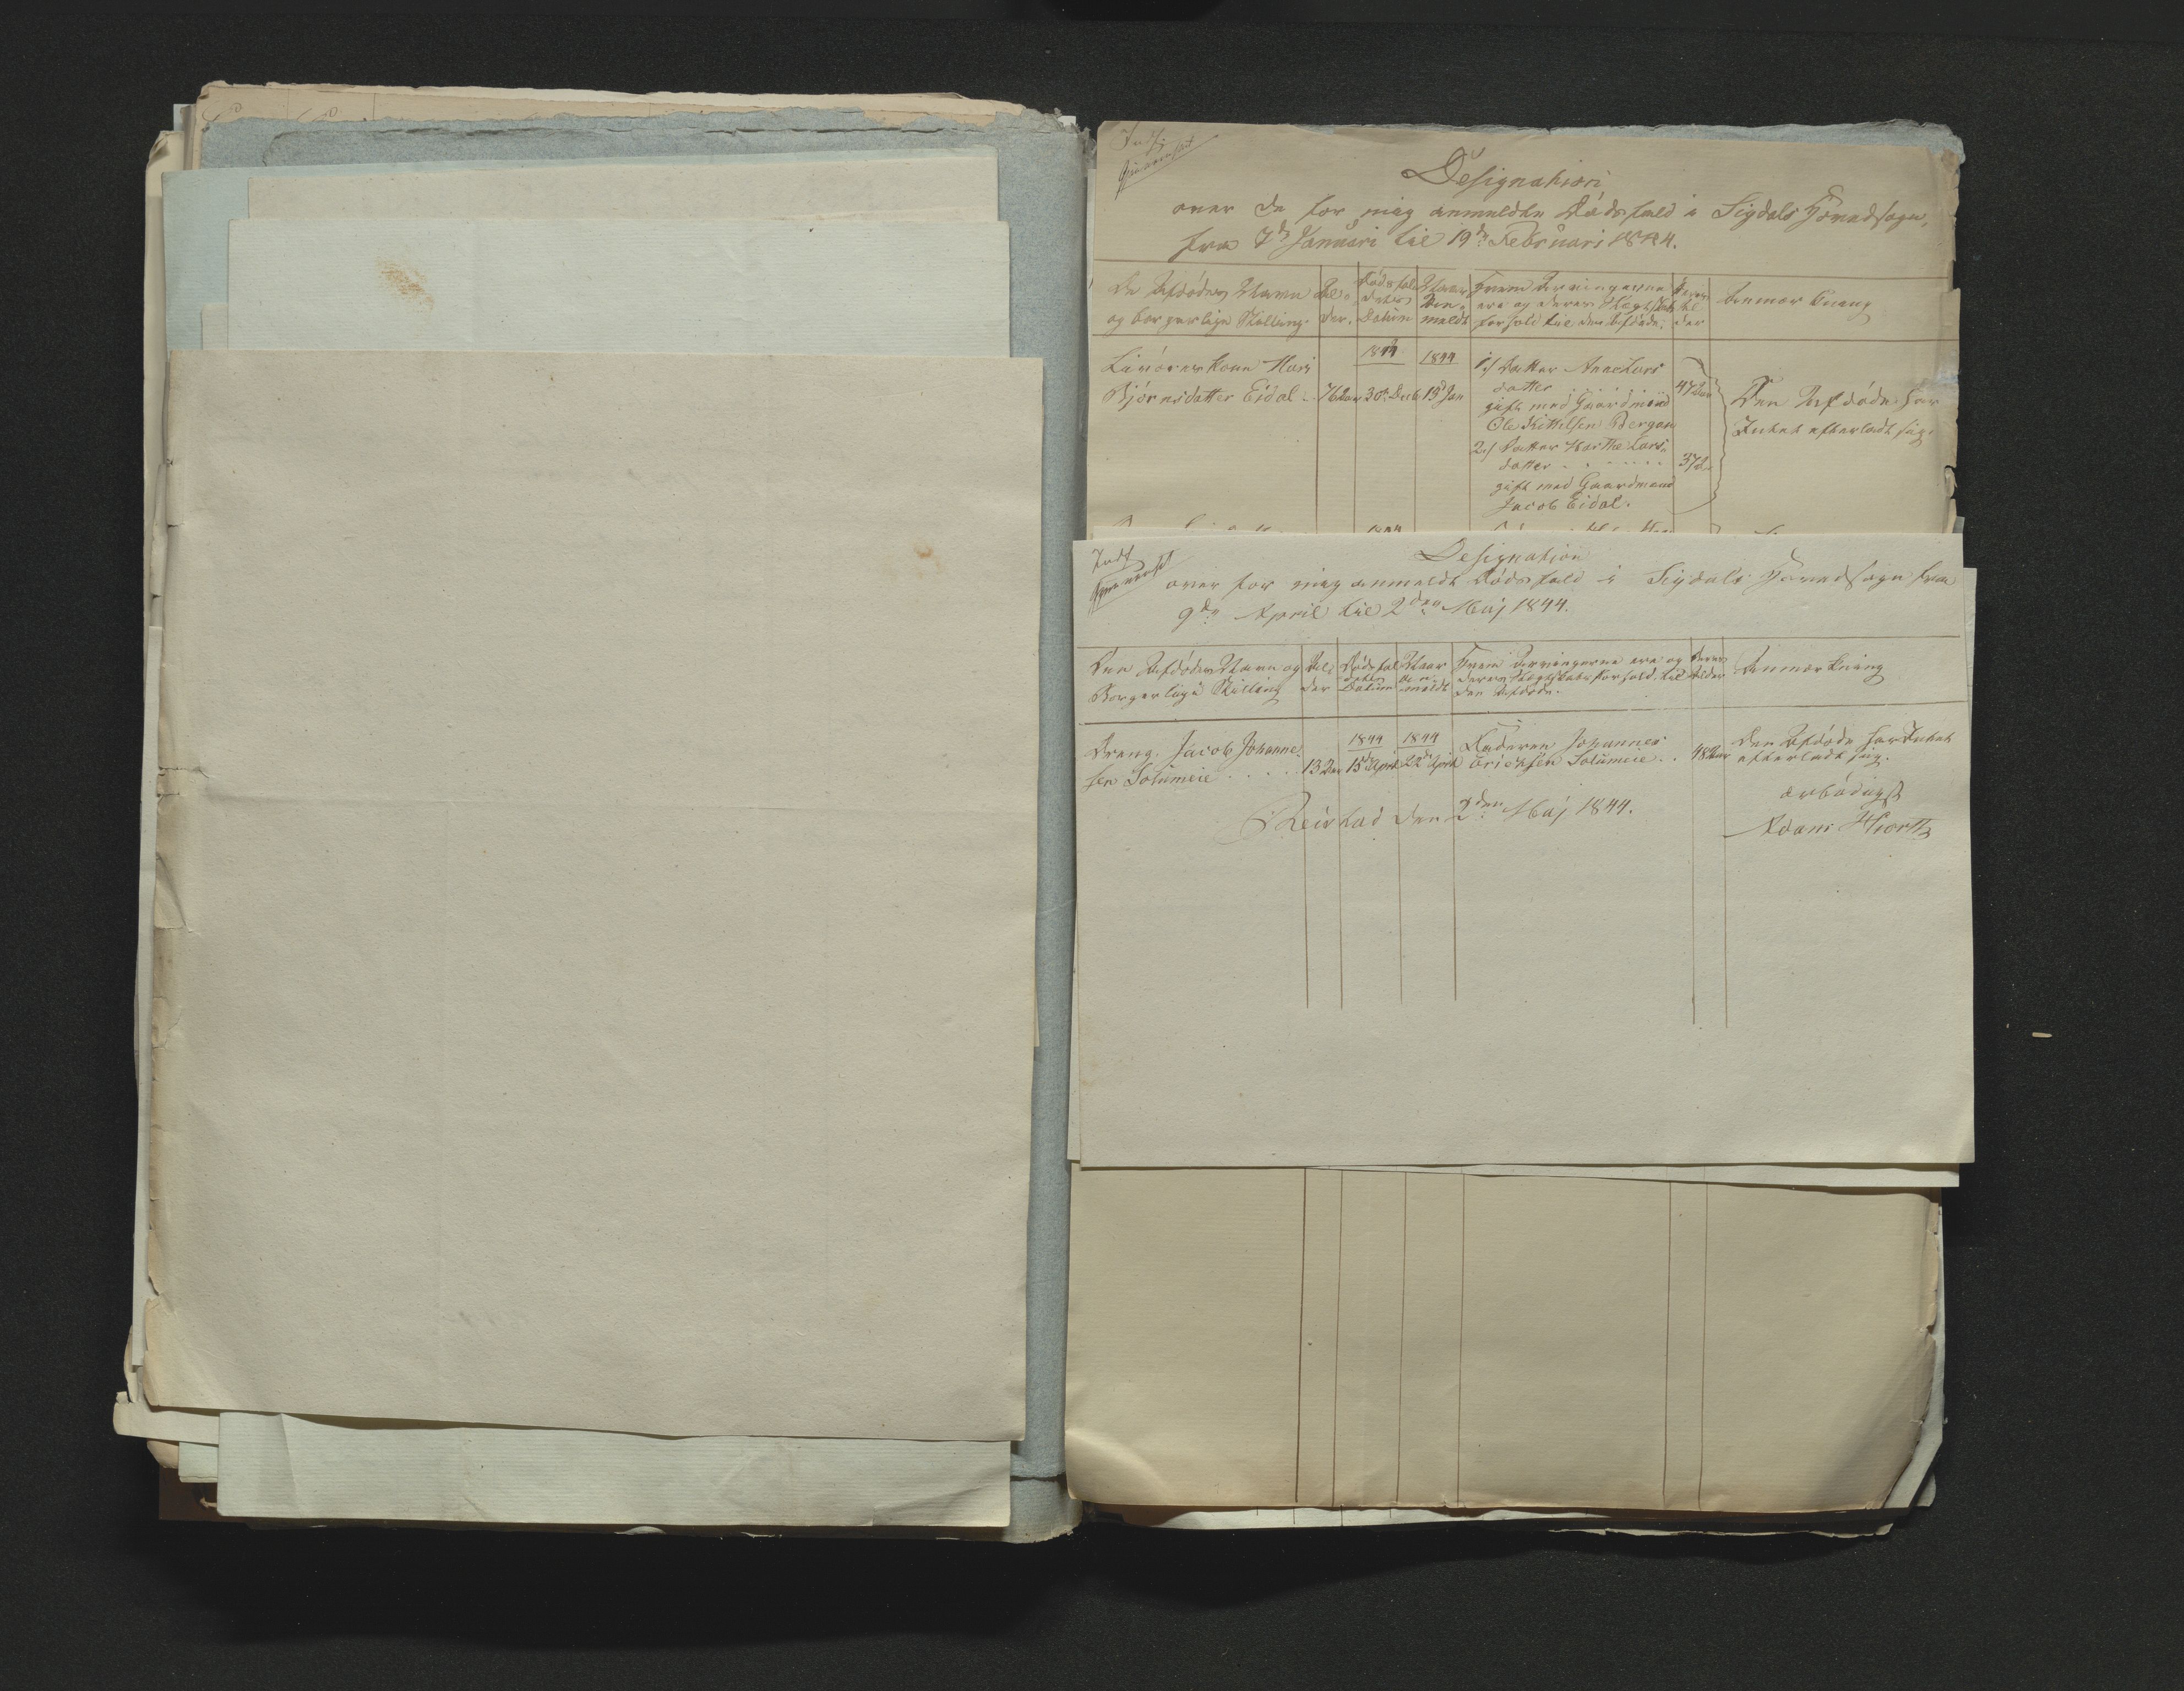 Indf
Designation
over de for mig anmeldte Dødsfald i Sigdals Hovedsogn,
fra 7de Januari til 19de Februari 1844.
De Afdødes Navn
og borgerlige Stilling.
Al-
der.
Dødsfal
dets
Datum
Naar
An-
meldt
Hvem Arvingerne
ere og deres Slægtskabs
forhold til den Afdøde.
Deres
Al
der
Anmærkning
Livørerkone Mari
Bjørnsdatter Eidal
76 Aar
30 Decb
1844
13de Jan
1/ Datter Anne Lars
datter . . . . . .
gift med Gaardmand
Ole Kittelsen Bergan
47 Aar
2/ Datter Marthe Lars-
datter . . . . . .
gift med Gaardmand
Jacob Eidal.
37 Aar
Den Afdøde har
Intet efterladt sig.
Indf
Designation
over for mig anmeldt Dødsfald i Sigdals Hovedsogn fra
9de April til 2den Maj 1844.
Den Afdødes Navn og
Borgerlige Stilling
Al-
der
Dødsfal
dets
Datum
Naar
an-
meldt
Hvem Arvingerne ere og
deres Slægtskabs forhold til
den Afdøde.
Deres
Alder
Anmærkning
Dreng Jacob Johanne
sen Solumeie . . . .
13 Aar
1844
15de April
1844
22de April
Faderen Johannes
Erichsen Solumeie . .
48 Aar
Den Afdøde har Intet
efterladt sig.
Reistad den 2den Maj 1844.
ærbødigst
Adam Hiorth